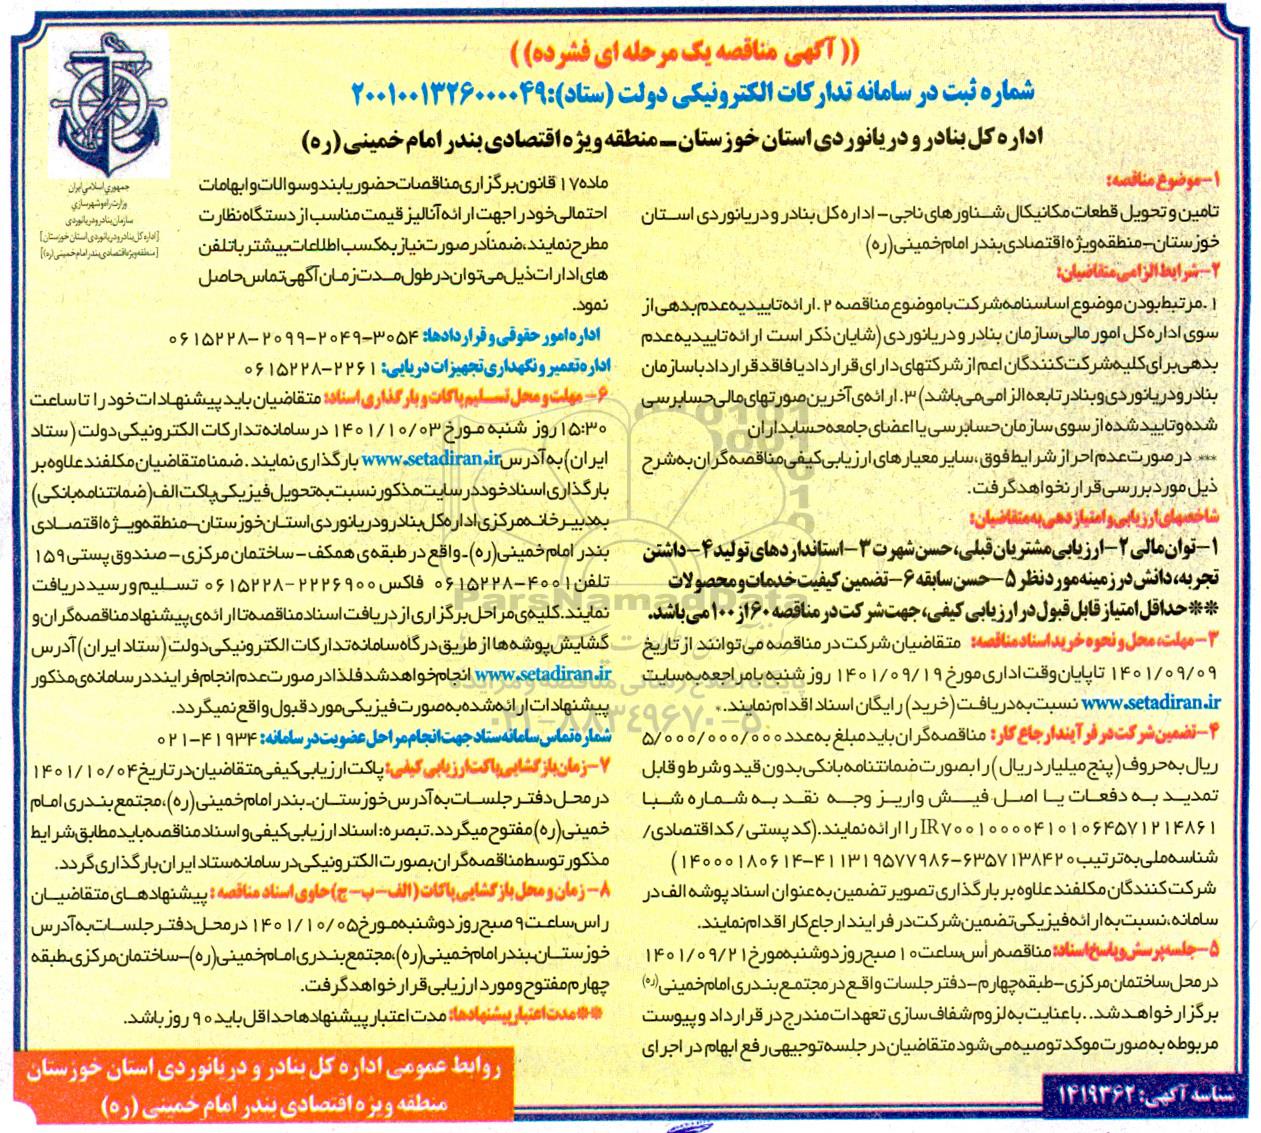 ((آگهی مناقصه یک مرحله ای فشرده))
شماره ثبت در سامانه تدارکات الکترونیکی دولت (ستاد):۲۰۰۱۰۰۱۳۲۶۰۰۰۰۴۹
اداره کل بنادر و دریانوردی استان خوزستان ـ منطقه ویژه اقتصادی بندر امام خمینی (ره)
جمهوری اسلامی ایران
وزارت راه و شهرسازی
سازمان بنادر و دریانوردی
[اداره کل بنادر و دریانوردی استان خوزستان]
[منطقه ویژه اقتصادی بندر امام خمینی (ره)]
۱-موضوع مناقصه:
تامین و تحویل قطعات مکانیکال شناورهای ناجی - اداره کل بنادر و دریانوردی استان
خوزستان-منطقه ویژه اقتصادی بندر امام خمینی (ره)
۲-شرایط الزامی متقاضیان:
۱.مرتبط بودن موضوع اساسنامه شرکت با موضوع مناقصه ۲.ارائه تاییدیه عدم بدهی از
سوی اداره کل امور مالی سازمان بنادر و دریانوردی (شایان ذکر است ارائه تاییدیه عدم
بدهی برای کلیه شرکت کنندگان اعم از شرکتهای دارای قرارداد یا فاقد قرارداد با سازمان
بنادر و دریانوردی و بنادر تابعه الزامی می باشد) ۳.ارائه ی آخرین صورتهای مالی حسابرسی
شده و تایید شده از سوی سازمان حسابرسی یا اعضای جامعه حسابداران
*** در صورت عدم احراز شرایط فوق، سایر معیارهای ارزیابی کیفی مناقصه گران به شرح
ذیل مورد بررسی قرار نخواهد گرفت.
شاخصهای ارزیابی و امتیاز دهی به متقاضیان:
۱-توان مالی ۲-ارزیابی مشتریان قبلی، حسن شهرت ۳-استانداردهای تولید ۴-داشتن
تجربه، دانش در زمینه مورد نظر ۵-حسن سابقه ۶-تضمین کیفیت خدمات و محصولات
**حداقل امتیاز قابل قبول در ارزیابی کیفی، جهت شرکت در مناقصه ۶۰ از ۱۰۰ می باشد.
۳-مهلت، محل و نحوه خرید اسناد مناقصه: متقاضیان شرکت در مناقصه می توانند از تاریخ
۱۴۰۱/۰۹/۰۹ تا پایان وقت اداری مورخ ۱۴۰۱/۰۹/۱۹ روز شنبه با مراجعه به سایت
www.setadiran.ir نسبت به دریافت (خرید) رایگان اسناد اقدام نمایند.
۴-تضمین شرکت در فرآیند ارجاع کار: مناقصه گران باید مبلغ به عدد ۵/۰۰۰/۰۰۰/۰۰۰
ریال به حروف (پنج میلیارد ریال) را بصورت ضمانتنامه بانکی بدون قید و شرط و قابل
تمدید به دفعات یا اصل فیش واریز وجه نقد به شماره شبا
IR۷۰۰۱۰۰۰۰۴۱۰۱۰۶۴۵۷۱۲۱۴۸۶۱ را ارائه نمایند.(کد پستی / کد اقتصادی/
شناسه ملی به ترتیب ۶۳۵۷۱۳۸۴۲۰-۴۱۱۳۱۹۵۷۷۹۸۶-۱۴۰۰۰۱۸۰۶۱۴)
شرکت کنندگان مکلفند علاوه بر بارگذاری تصویر تضمین به عنوان اسناد پوشه الف در
سامانه، نسبت به ارائه فیزیکی تضمین شرکت در فرایند ارجاع کار اقدام نمایند.
۵-جلسه پرسش و پاسخ اسناد: مناقصه رأس ساعت ۱۰ صبح روز دوشنبه مورخ ۱۴۰۱/۰۹/۲۱
در محل ساختمان مرکزی-طبقه چهارم-دفتر جلسات واقع در مجتمع بندری امام خمینی (ره)
برگزار خواهد شد..با عنایت به لزوم شفاف سازی تعهدات مندرج در قرارداد و پیوست
مربوطه به صورت موکد توصیه می شود متقاضیان در جلسه توجیهی رفع ابهام در اجرای
ماده ۱۷ قانون برگزاری مناقصات حضور یابند و سوالات و ابهامات
احتمالی خود را جهت ارائه آنالیز قیمت مناسب از دستگاه نظارت
مطرح نمایند، ضمناً در صورت نیاز به کسب اطلاعات بیشتر با تلفن
های ادارات ذیل می توان در طول مدت زمان آگهی تماس حاصل
نمود.
اداره امور حقوقی و قراردادها: ۳۰۵۴-۲۰۴۹-۲۰۹۹-۰۶۱۵۲۲۸
اداره تعمیر و نگهداری تجهیزات دریایی: ۲۲۶۱-۰۶۱۵۲۲۸
۶- مهلت و محل تسلیم پاکات و بارگذاری اسناد: متقاضیان باید پیشنهادات خود را تا ساعت
۱۵:۳۰ روز شنبه مورخ ۱۴۰۱/۱۰/۰۳ در سامانه تدارکات الکترونیکی دولت (ستاد
ایران) به آدرس www.setadiran.ir بارگذاری نمایند. ضمنا متقاضیان مکلفند علاوه بر
بارگذاری اسناد خود در سایت مذکور نسبت به تحویل فیزیکی پاکت الف (ضمانتنامه بانکی)
به دبیرخانه مرکزی اداره کل بنادر و دریانوردی استان خوزستان-منطقه ویژه اقتصادی
بندر امام خمینی (ره)ـ واقع در طبقه ی همکف-ساختمان مرکزی-صندوق پستی ۱۵۹
تلفن ۴۰۰۱-۰۶۱۵۲۲۸ فاکس ۲۲۲۶۹۰۰-۰۶۱۵۲۲۸ تسلیم و رسید دریافت
نمایند. کلیه ی مراحل برگزاری از دریافت اسناد مناقصه تا ارائه ی پیشنهاد مناقصه گران و
گشایش پوشه ها از طریق درگاه سامانه تدارکات الکترونیکی دولت (ستاد ایران) آدرس
www.setadiran.ir انجام خواهد شد فلذا در صورت عدم انجام فرایند در سامانه ی مذکور
پیشنهادات ارائه شده به صورت فیزیکی مورد قبول واقع نمیگردد.
شماره تماس سامانه ستاد جهت انجام مراحل عضویت در سامانه: ۴۱۹۳۴-۰۲۱
۷-زمان بازگشایی پاکت ارزیابی کیفی: پاکت ارزیابی کیفی متقاضیان در تاریخ ۱۴۰۱/۱۰/۰۴
در محل دفتر جلسات به آدرس خوزستان-بندر امام خمینی (ره)، مجتمع بندری امام
خمینی (ره) مفتوح میگردد. تبصره: اسناد ارزیابی کیفی و اسناد مناقصه باید مطابق شرایط
مذکور توسط مناقصه گران بصورت الکترونیکی در سامانه ستاد ایران بارگذاری گردد.
۸- زمان و محل بازگشایی پاکات (الف-ب-ج) حاوی اسناد مناقصه: پیشنهادهای متقاضیان
راس ساعت ۹ صبح روز دوشنبه مورخ ۱۴۰۱/۱۰/۰۵ در محل دفتر جلسات به آدرس
خوزستان-بندر امام خمینی (ره)، مجتمع بندری امام خمینی (ره)-ساختمان مرکزی-طبقه
چهارم مفتوح و مورد ارزیابی قرار خواهد گرفت.
**مدت اعتبار پیشنهادها: مدت اعتبار پیشنهادها حداقل باید ۹۰ روز باشد.
روابط عمومی اداره کل بنادر و دریانوردی استان خوزستان
منطقه ویژه اقتصادی بندر امام خمینی (ره)
شناسه آگهی: ۱۴۱۹۳۶۲
ParsNamadData
پایگاه اطلاع رسانی مناقصه و مزایده
۰۲۱-۸۸۳۴۹۶۷۰-۵